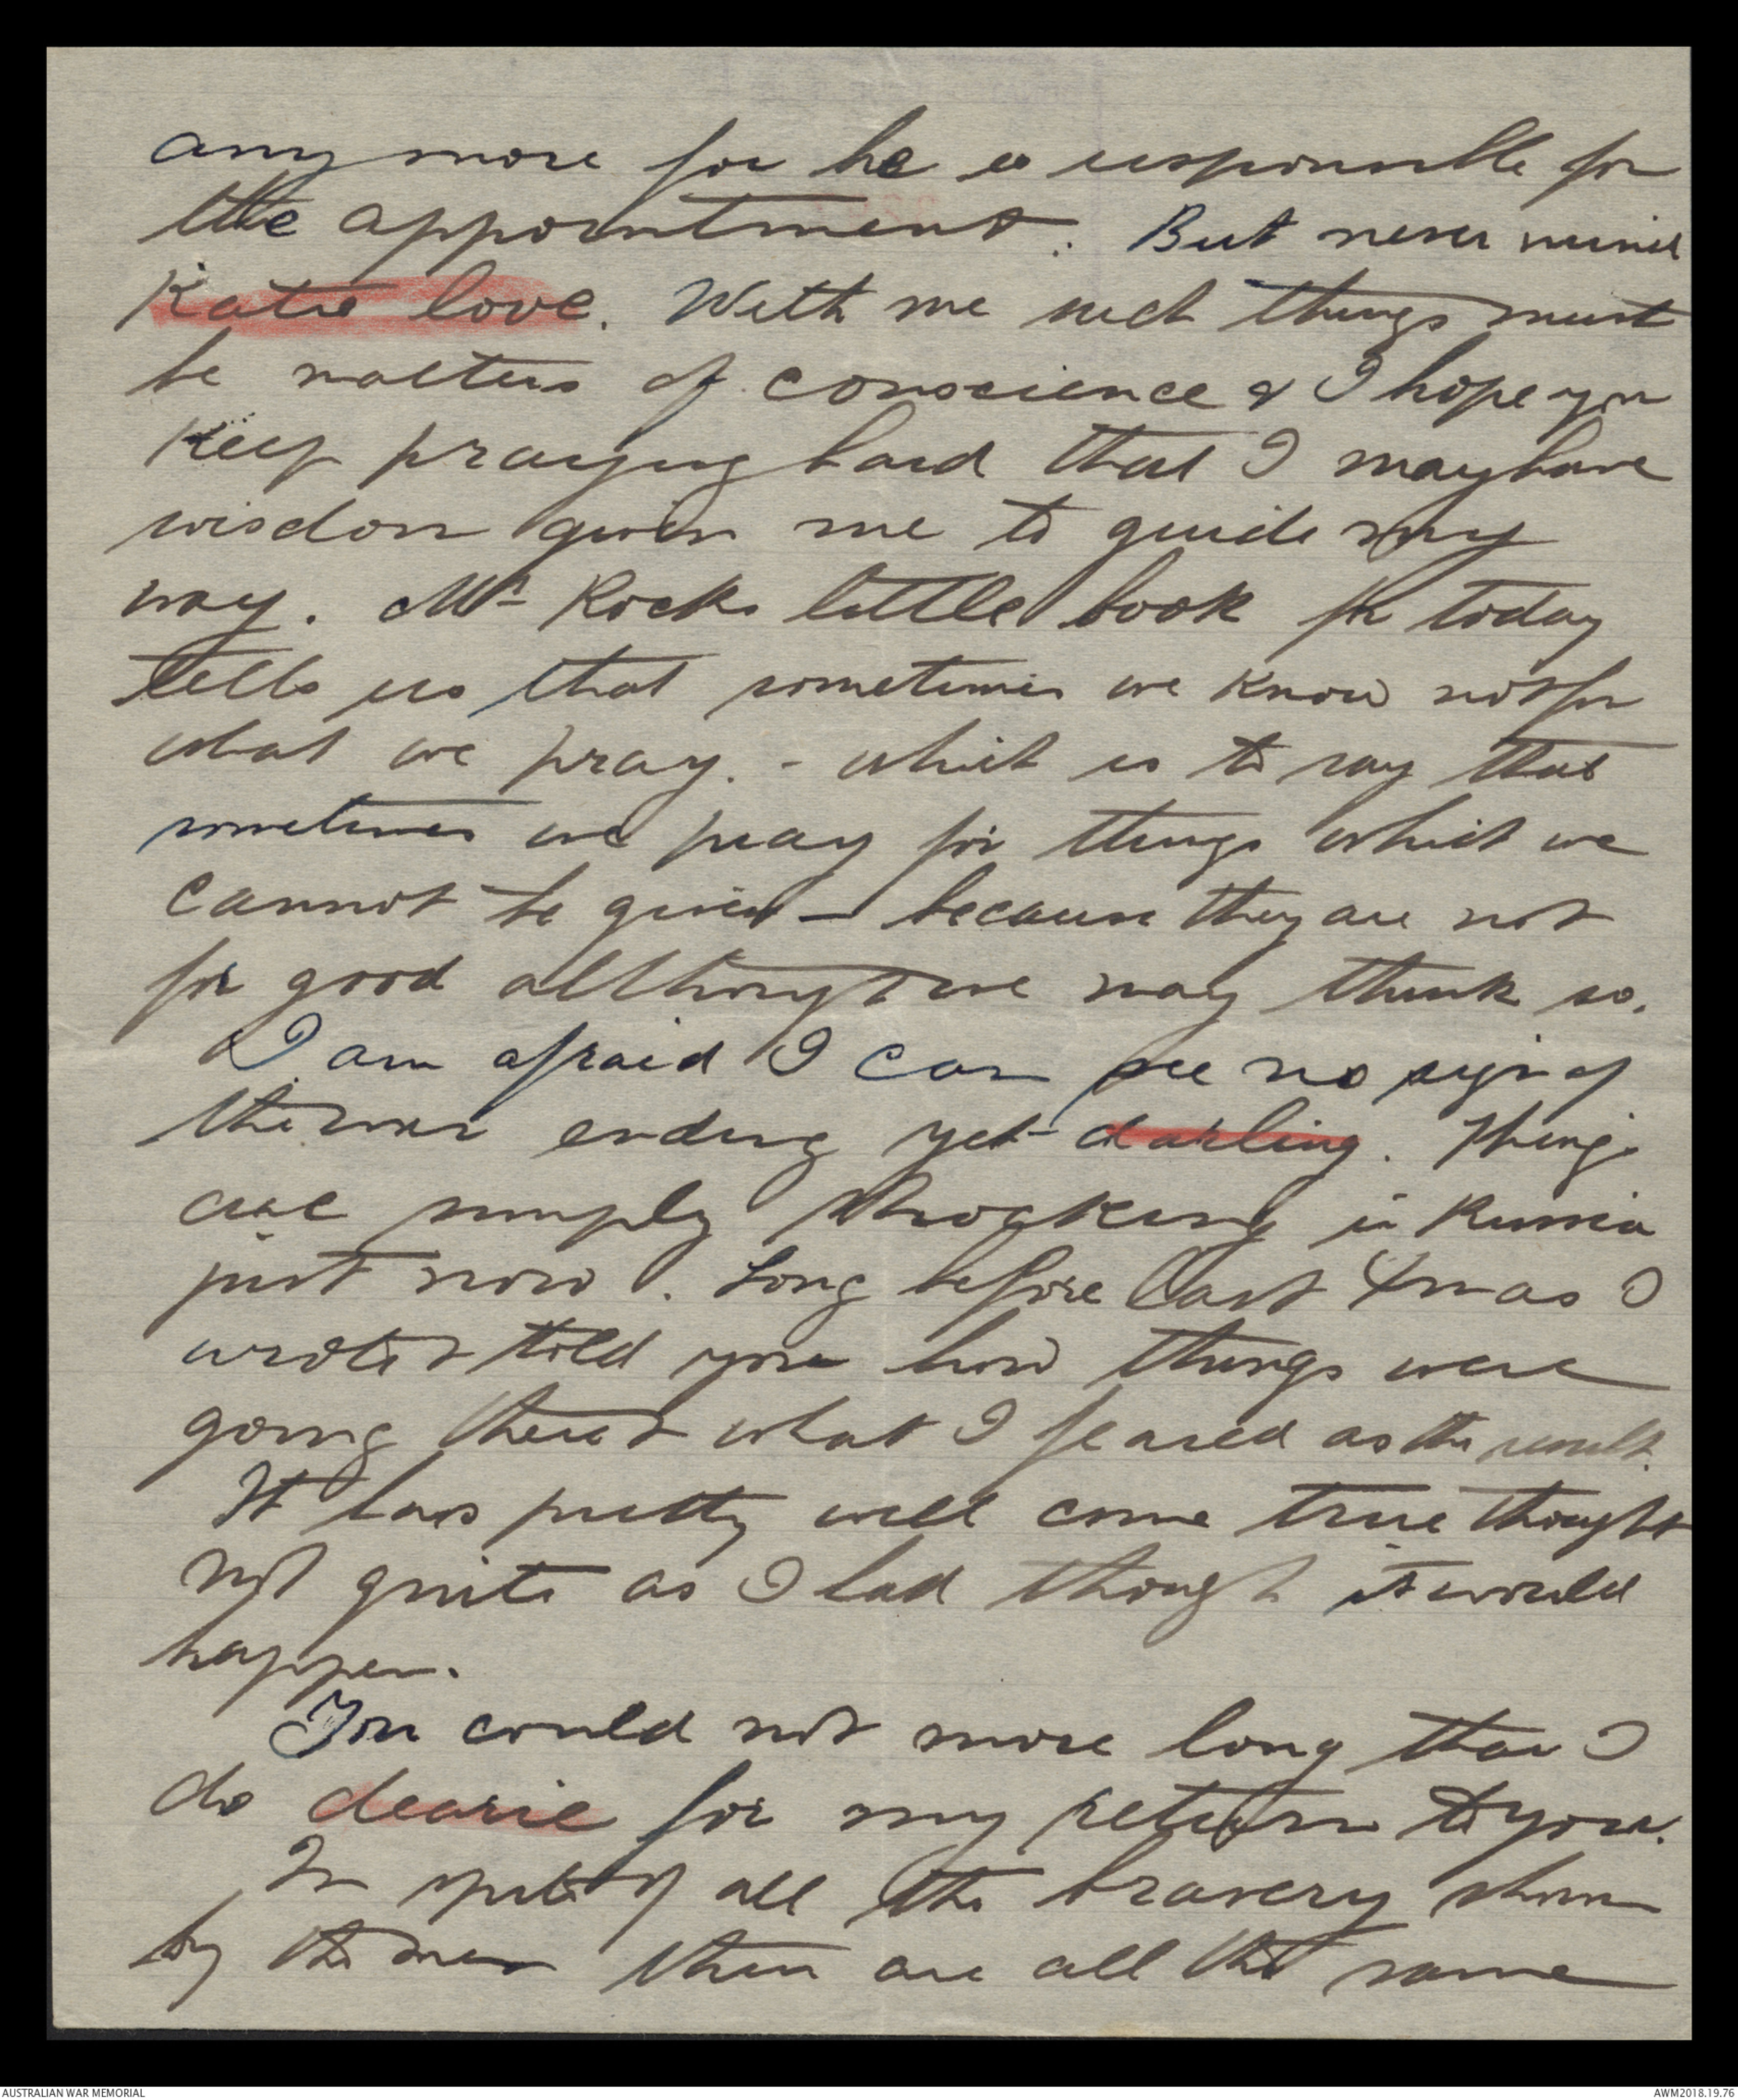 any more for he is responsible for
the appointment. But never mind
Katie love. With me such things must
be matters of conscience & I hope you
keep praying hard that I may have
wisdom given me to guide my
way. Mrs Rocks little book for today
tells us that sometimes we know not for
what we pray. - which is to say that
sometimes we pray for things which we
cannot be given - because they are not
for good although we may think so.
I am afraid I can see no sign of
the war ending yet darling. Things
are simply shocking in Russia
just now. Long before last Xmas I
wrote & told you how things were
going there & what I feared as the result.
It has pretty well come true though
not quite as I had thought it would
happen.
You could not more long than I
do dearie for my return to you.
In spite of all the bravery shown
by the men there are all the same
AUSTRALIAN WAR MEMORIAL
AWM2018.19.76